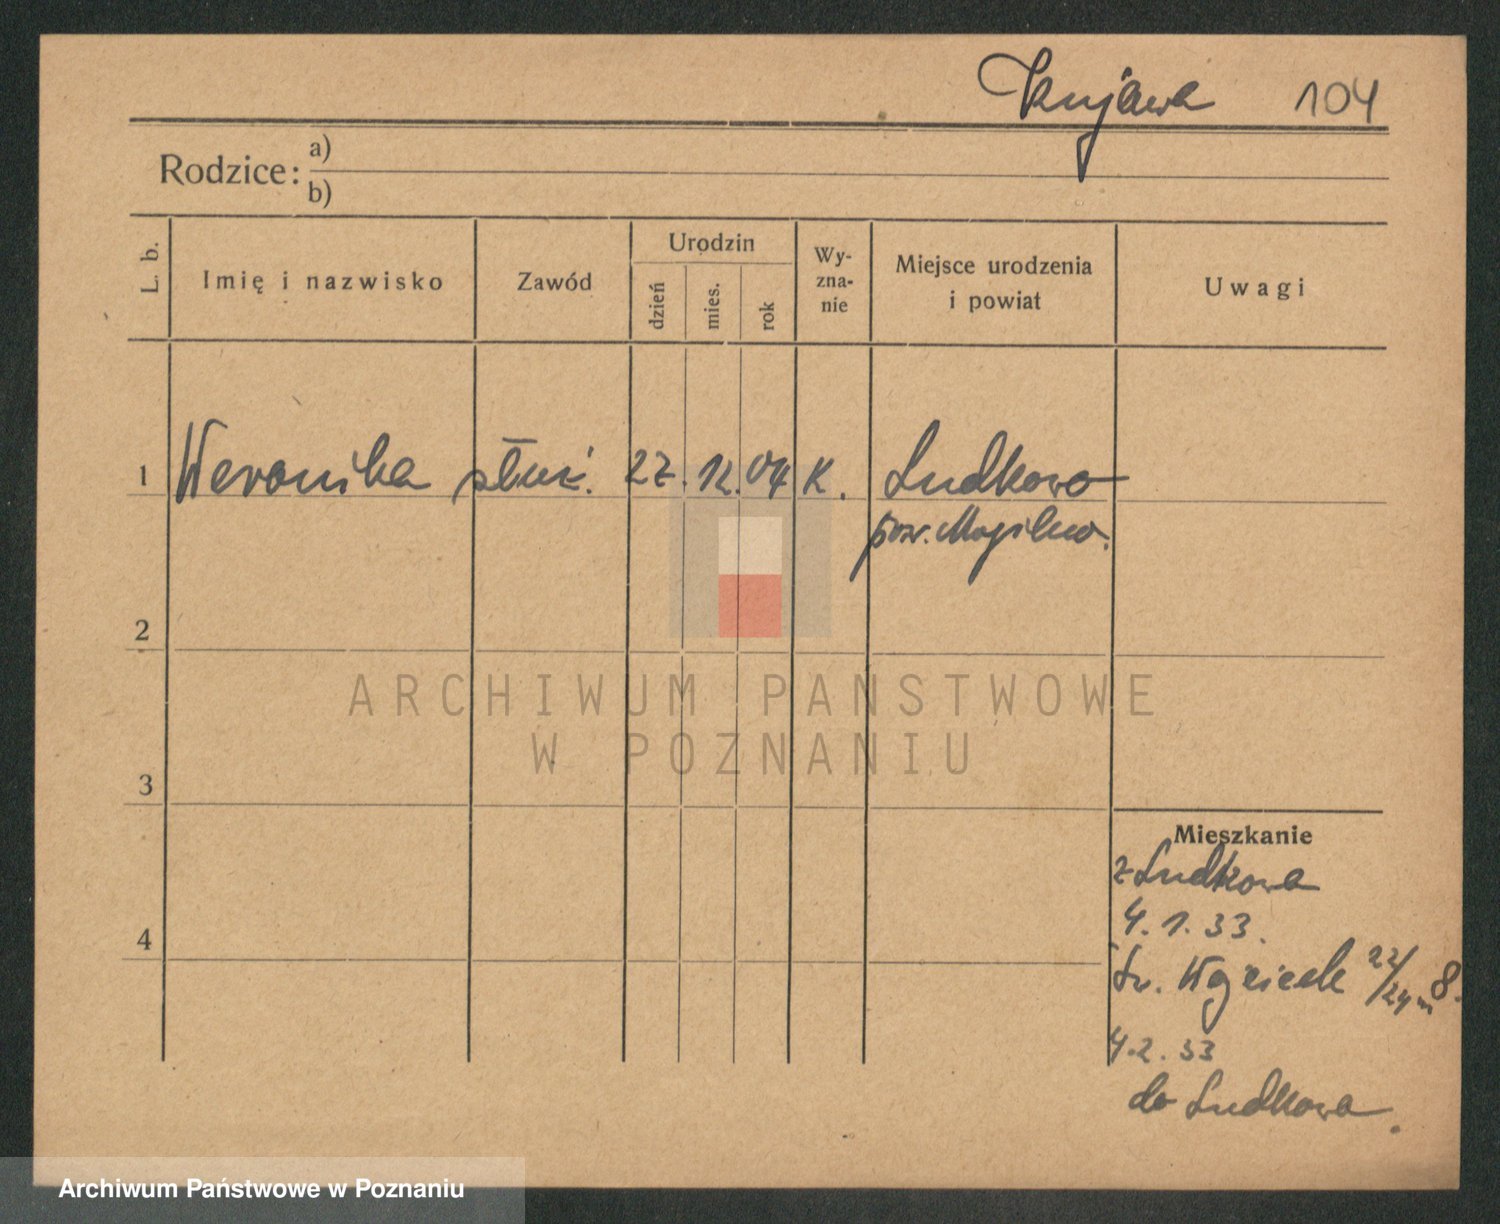 Kujawa 104
Rodzice: a)
b)
L. b.
Imię i nazwisko
Zawód
Urodzin
dzień
mies.
rok
Wy-
zna-
nie
Miejsce urodzenia
i powiat
Uwagi
1 Weronika służ. 22. 12. 04 K. Ludkowo
pow. Mogilno.
2
3
4
ARCHIWUM PANSTWOWE
W POZNANIU
Mieszkanie
z Ludkowa
4. 1. 33.
Św. Wojciech 22/24 m 8.
4. 2. 33
do Ludkowa.
Archiwum Państwowe w Poznaniu